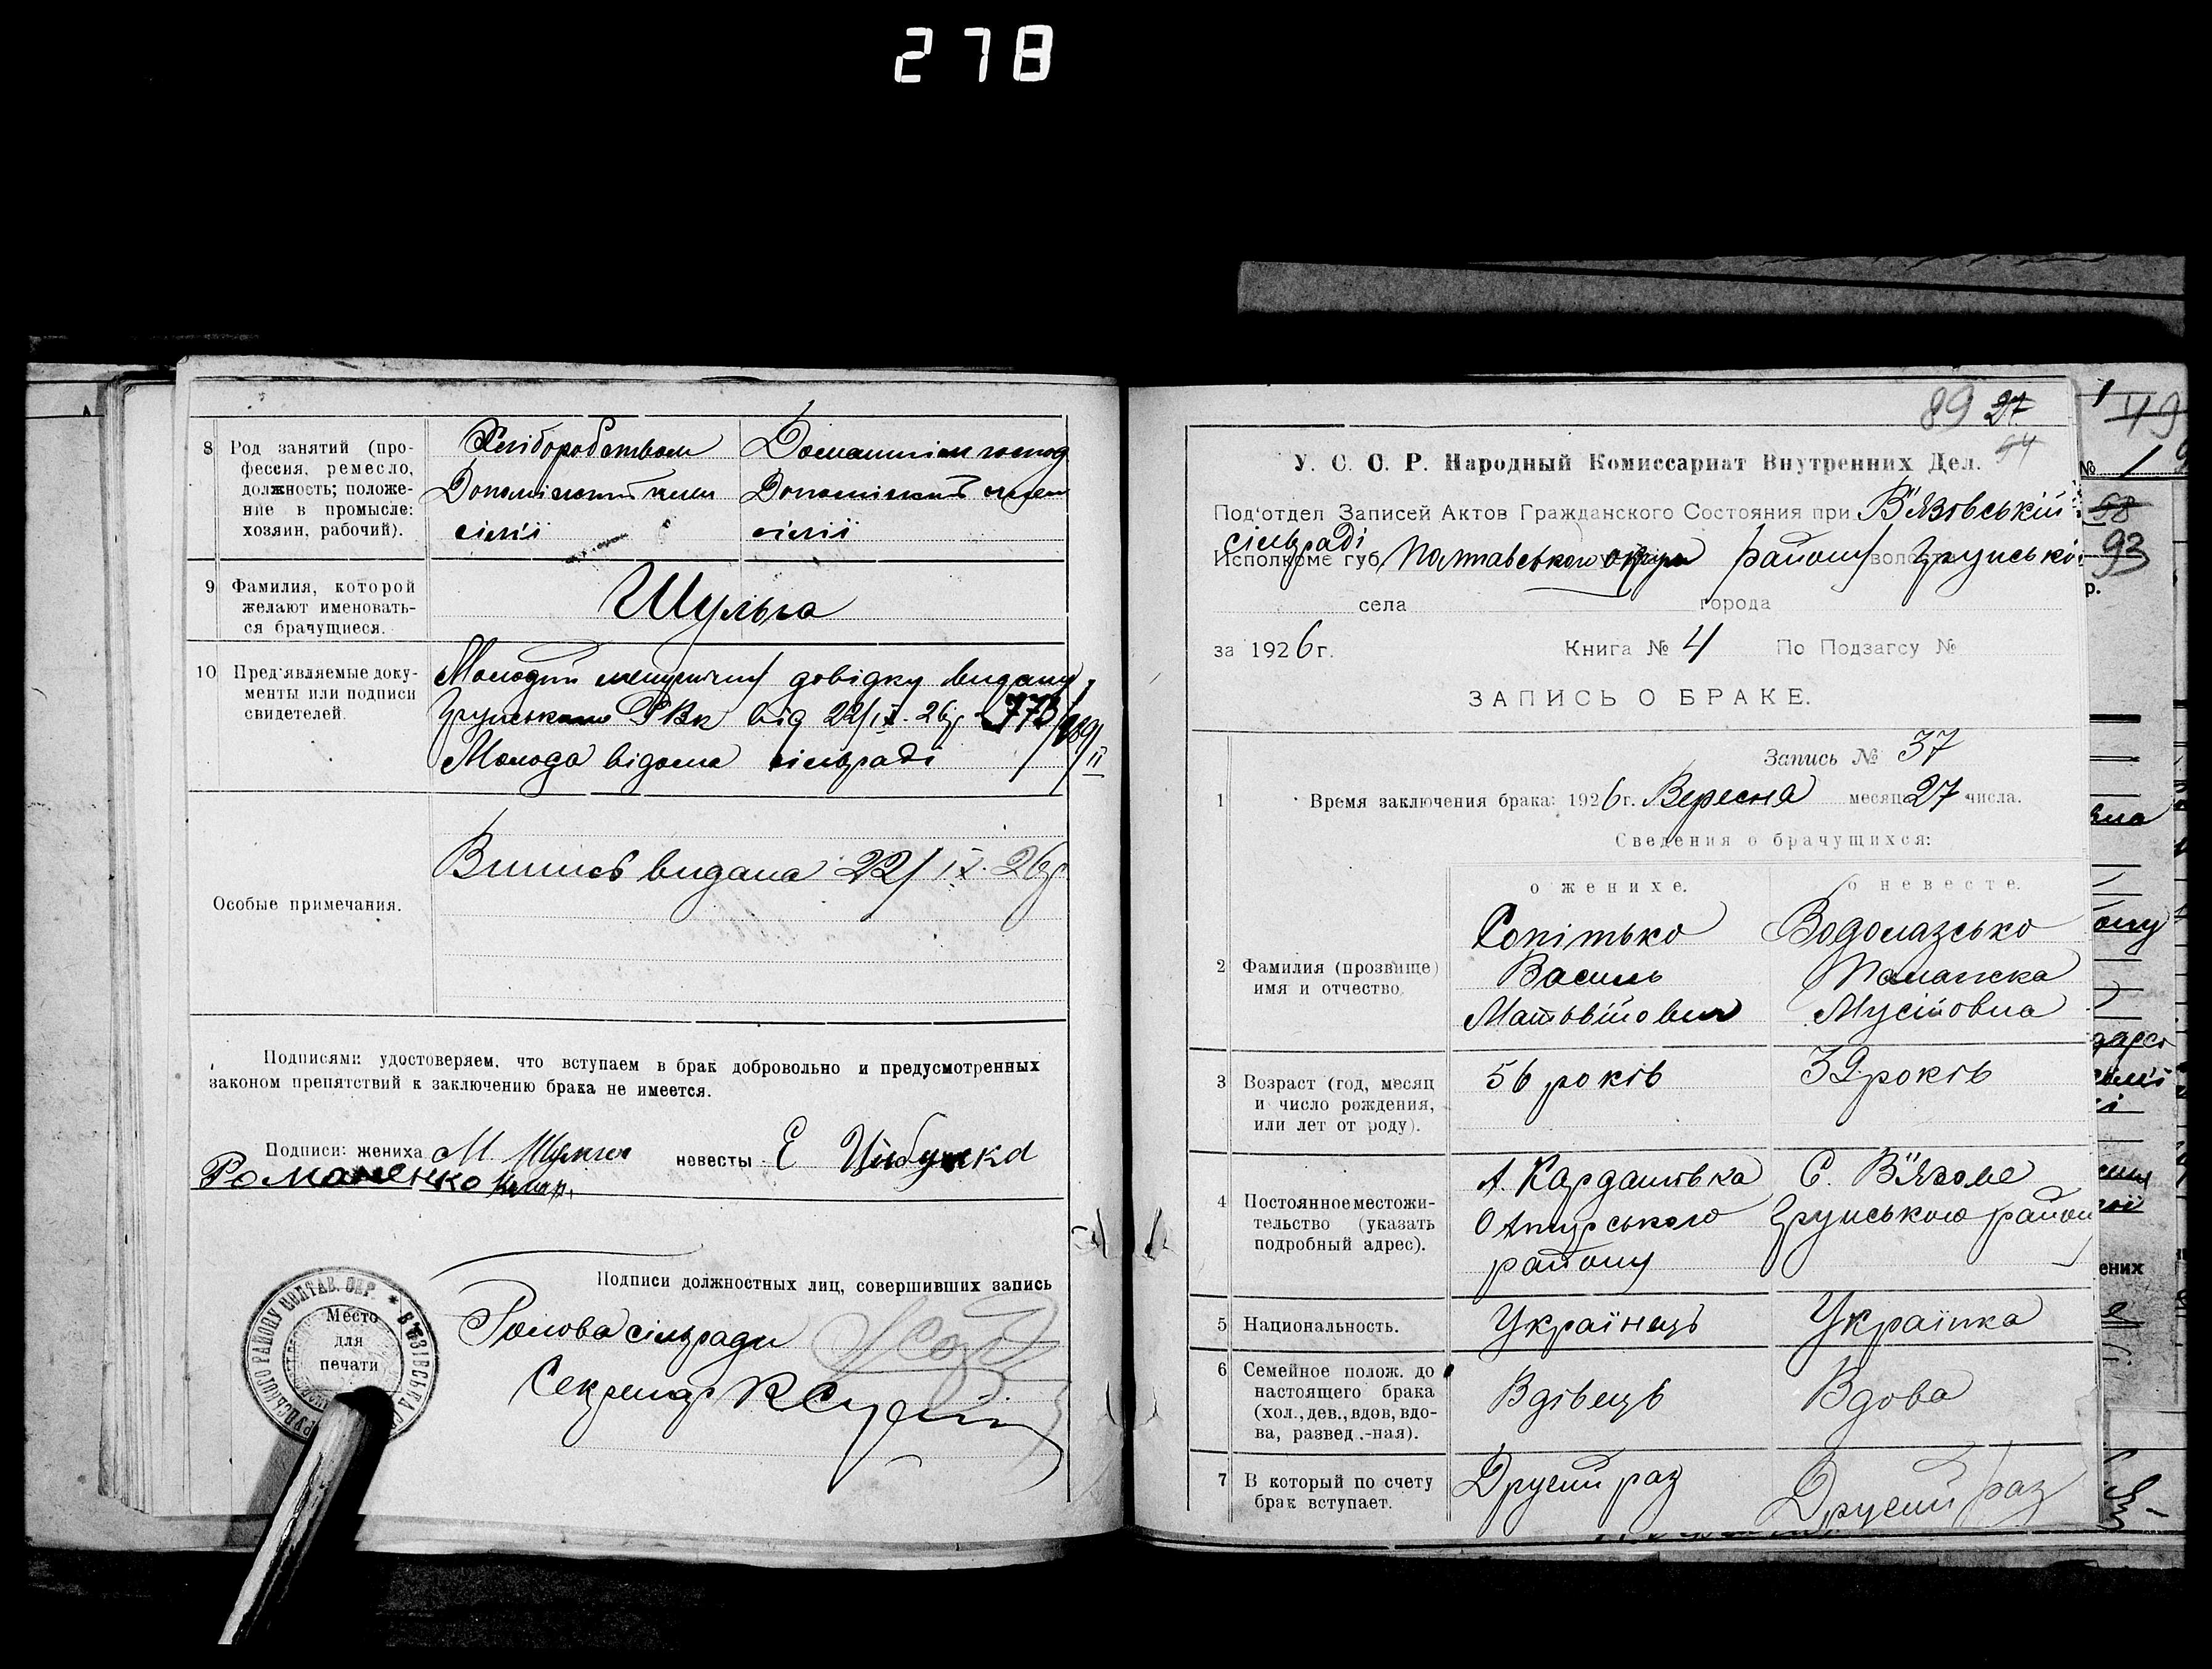 278
8 Род занятий (про-
фессия, ремесло,
должность; положе-
ние в промысле:
хозяин, рабочий).
Хліборобством
Допоміжний член
сім'ї
Домашнім господ
Допоміжний член
сім'ї
9 Фамилия, которой
желают именовать-
ся брачущиеся.
Шульга
10 Пред'являемые доку-
менты или подписи
свидетелей.
Молодий довідку видану
Грунським РВК від 22/ІХ-26р 773/
Молода відома сільраді
Особые примечания.
Випись видана 22/ІХ-26р
Подписями удостоверяем, что вступаем в брак добровольно и предусмотренных
законом препятствий к заключению брака не имеется.
Подписи: жениха М. Шульга невесты Є Цибулька
Романенко
Подписи должностных лиц, совершивших запись
Голова сільради
Секретар
Место
для
печати
РАЙОНУ ПОЛТАВ. ОКР. * В'ЯЗІВСЬКА
89 27
54
У. С. С. Р. Народный Комиссариат Внутренних Дел.
Под'отдел Записей Актов Гражданского Состояния при В'язовській
сільраді
Исполкоме губ. Полтавського округи району Грунські
села города
за 1926 г. Книга № 4 По Подзагсу №
ЗАПИСЬ О БРАКЕ.
Запись № 37
1 Время заключения брака: 1926 г. Вересня месяц 27 числа.
Сведения о брачущихся:
о женихе. о невесте.
2 Фамилия (прозвище)
имя и отчество
Сопітько
Василь
Матвійович
Водолазсько
Палажка
Мусіївна
3 Возраст (год, месяц
и число рождения,
или лет от роду).
56 років
32 років
4 Постоянное местожи-
тельство (указать
подробный адрес).
Х. Кардашівка
Охтирського
району
С. В'язове
Грунського район
5 Национальность.
Українець
Українка
6 Семейное полож. до
настоящего брака
(хол., дев., вдов, вдо-
ва, развед.-ная).
Вдівець
Вдова
7 В который по счету
брак вступает.
Другий раз
Другий раз
№ 1
58
93
р.
ених